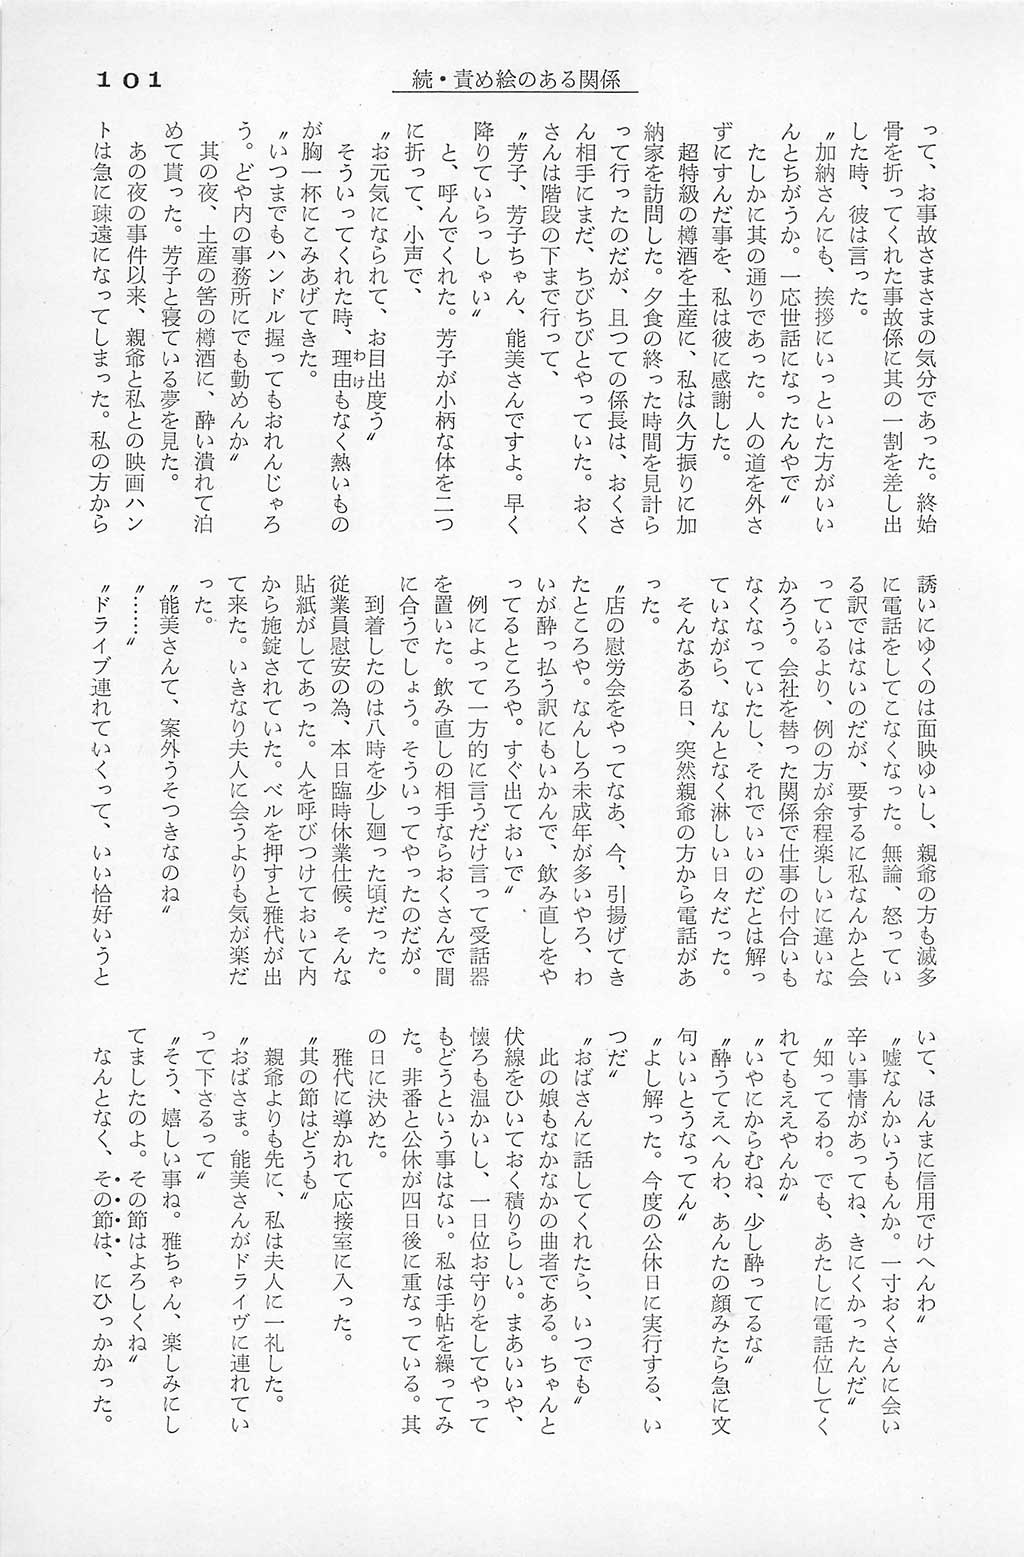 101
続・責め絵のある関係
って、お事故さまさまの気分であった。終始
骨を折ってくれた事故係に其の一割を差し出
した時、彼は言った。
〝加納さんにも、挨拶にいっといた方がいい
んとちがうか。一応世話になったんやで〟
たしかに其の通りであった。人の道を外さ
ずにすんだ事を、私は彼に感謝した。
超特級の樽酒を土産に、私は久方振りに加
納家を訪問した。夕食の終った時間を見計ら
って行ったのだが、且つての係長は、おくさ
ん相手にまだ、ちびちびとやっていた。おく
さんは階段の下まで行って、
〝芳子、芳子ちゃん、能美さんですよ。早く
降りていらっしゃい〟
と、呼んでくれた。芳子が小柄な体を二つ
に折って、小声で、
〝お元気になられて、お目出度う〟
そういってくれた時、理由もなく熱いもの
わけ
が胸一杯にこみあげてきた。
〝いつまでもハンドル握ってもおれんじゃろ
う。どや内の事務所にでも勤めんか〟
其の夜、土産の筈の樽酒に、酔い潰れて泊
めて貰った。芳子と寝ている夢を見た。
あの夜の事件以来、親爺と私との映画ハン
トは急に疎遠になってしまった。私の方から
誘いにゆくのは面映ゆいし、親爺の方も滅多
に電話をしてこなくなった。無論、怒ってい
る訳ではないのだが、要するに私なんかと会
っているより、例の方が余程楽しいに違いな
かろう。会社を替った関係で仕事の付合いも
なくなっていたし、それでいいのだとは解っ
ていながら、なんとなく淋しい日々だった。
そんなある日、突然親爺の方から電話があ
った。
〝店の慰労会をやってなあ、今、引揚げてき
たところや。なんしろ未成年が多いやろ、わ
いが酔っ払う訳にもいかんで、飲み直しをや
ってるところや。すぐ出ておいで〟
例によって一方的に言うだけ言って受話器
を置いた。飲み直しの相手ならおくさんで間
に合うでしょう。そういってやったのだが。
到着したのは八時を少し廻った頃だった。
従業員慰安の為、本日臨時休業仕候。そんな
貼紙がしてあった。人を呼びつけておいて内
から施錠されていた。ベルを押すと雅代が出
て来た。いきなり夫人に会うよりも気が楽だ
った。
〝能美さんて、案外うそつきなのね〟
〝……〟
〝ドライブ連れていくって、いい恰好いうと
いて、ほんまに信用でけへんわ〟
〝嘘なんかいうもんか。一寸おくさんに会い
辛い事情があってね、きにくかったんだ〟
〝知ってるわ。でも、あたしに電話位してく
れてもええやんか〟
〝いやにからむね、少し酔ってるな〟
〝酔うてえへんわ、あんたの顔みたら急に文
句いいとうなってん〟
〝よし解った。今度の公休日に実行する、い
つだ〟
〝おばさんに話してくれたら、いつでも〟
此の娘もなかなかの曲者である。ちゃんと
伏線をひいておく積りらしい。まあいいや、
懐ろも温かいし、一日位お守りをしてやって
もどうという事はない。私は手帖を繰ってみ
た。非番と公休が四日後に重なっている。其
の日に決めた。
雅代に導かれて応接室に入った。
〝其の節はどうも〟
親爺よりも先に、私は夫人に一礼した。
〝おばさま。能美さんがドライヴに連れてい
って下さるって〟
〝そう、嬉しい事ね。雅ちゃん、楽しみにし
てましたのよ。その節はよろしくね〟
なんとなく、その節は、にひっかかった。